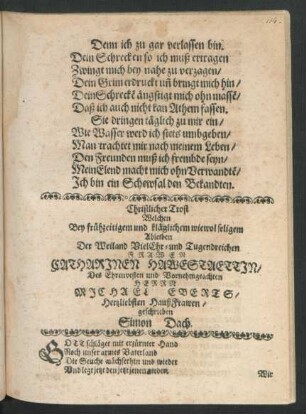 114.
Denn ich zu gar verlassen bin.
Dein Schrecken so ich muß ertragen
Zwingt mich bey nahe zu verzagen/
Dein Grim erdruckt uñ bringt mich hin/
DeinSchreckt ängstigt mich ohn masse/
Daß ich auch nicht kan Athem fassen.
Sie dringen täglich zu mir ein/
Wie Wasser werd ich stets umbgeben/
Man trachtet mir nach meinem Leben/
Den Freunden muß ich frembde seyn/
MeinElend macht mich ohn Verwandte/
Ich bin ein Schewsal den Bekandten.
Christlicher Trost
Welchen
Bey frühzeitigem und kläglichem wiewol seligem
Ableiben
Der Weiland VielEhr- und Tugendreichen
FRAWEN
CATHARINEN HAVESTAETTIN/
Des Ehrenvesten und Vornehmgeachten
HERRN
MICHAEL EBERTS/
Hertzliebsten HaußFrawen/
geschrieben
Simon Dach.
GOTT schläget mit erzürnter Hand
Noch unser armes Vaterland
Die Seuche wächset hin und wieder
Und legt jetzt den jetzt jenen nieder.
Wir